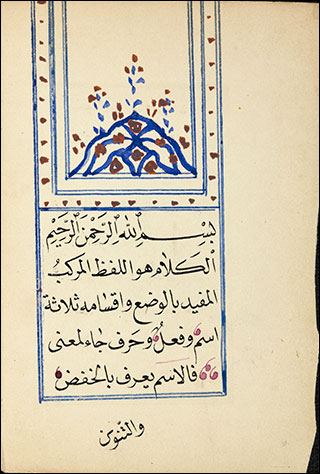 بِسْمِ اللهِ الرَّحْمٰنِ الرَّحِيْمِ
الكلام هو اللفظ المركب
المفيد بالوضع واقسامه ثلاثة
اسم وفعل وحرف جاء لمعنى
فالاسم يعرف بالخفض
والتنوين